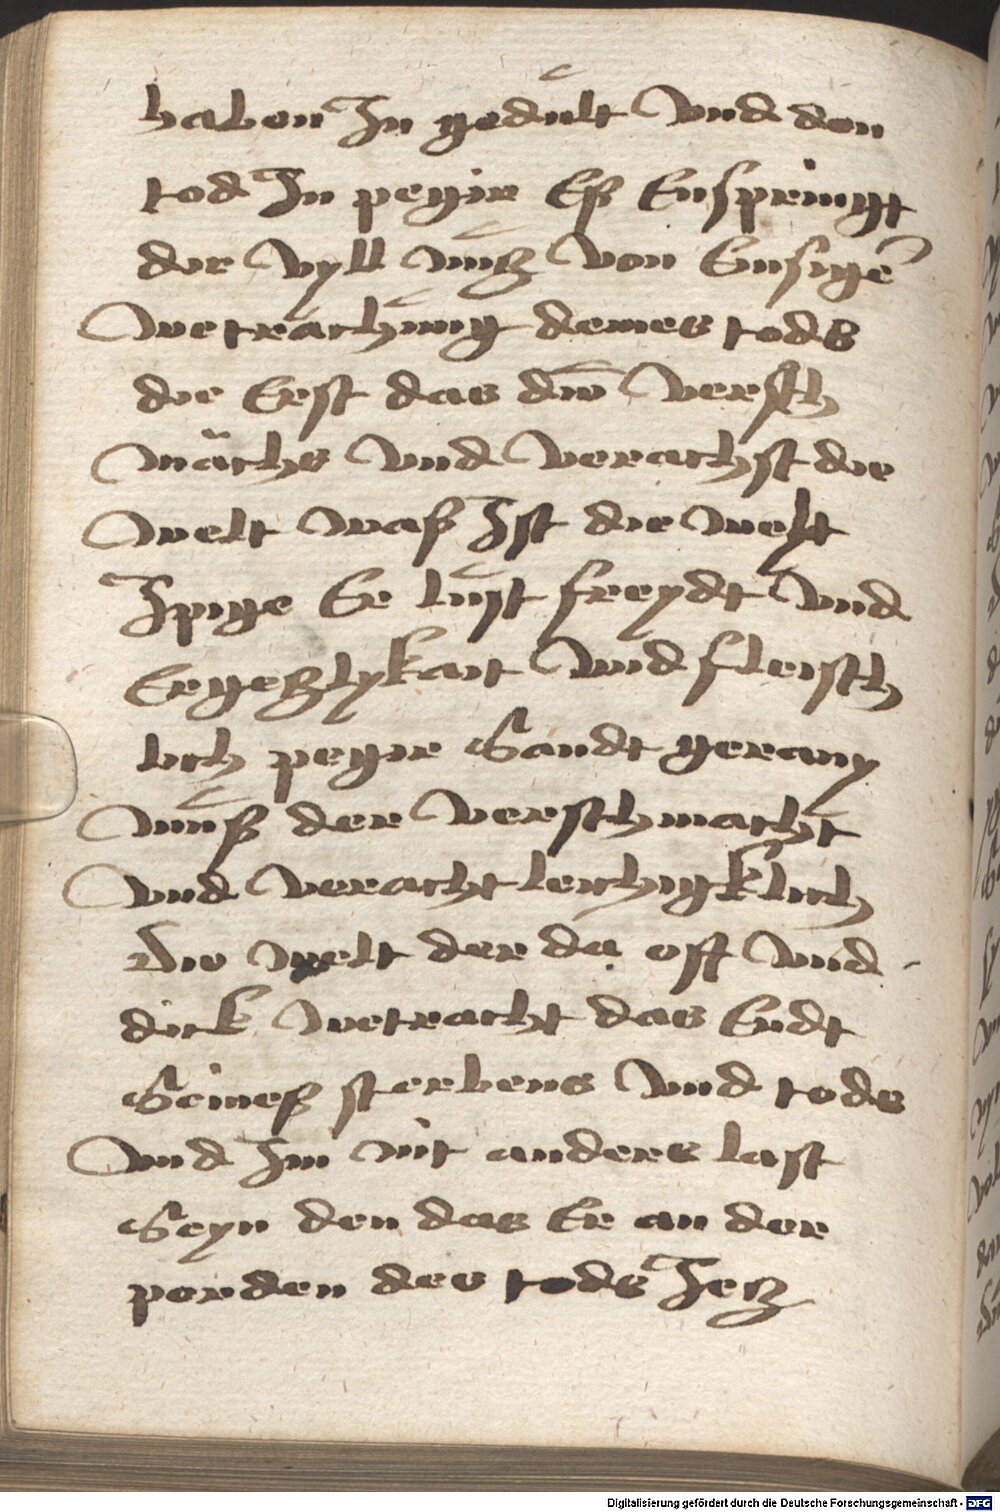 haben In gedult Vnd den
tod In pegir Eß Enspringt
dir Vyll nutz Von Ensigē
Wetrachtung deines tods
die Erst das diu Versch
mächs Vnd Verachst die
welt waß Ist die welt
Ipige Er lust freydt Vnd
Ergetzlykait Vnd fleisch
lich pegir Sandt
muß der Verschmacht
Vnd Veracht leichigklich
Die welt der da oft Vnd
dick Wetracht das Endt
Seineß sterbens Vnd tods
Vnd Im nit anders last
Seyn den das Er an der
porden des tods Ietz
Digitalisierung gefördert durch die Deutsche Forschungsgemeinschaft - DFG